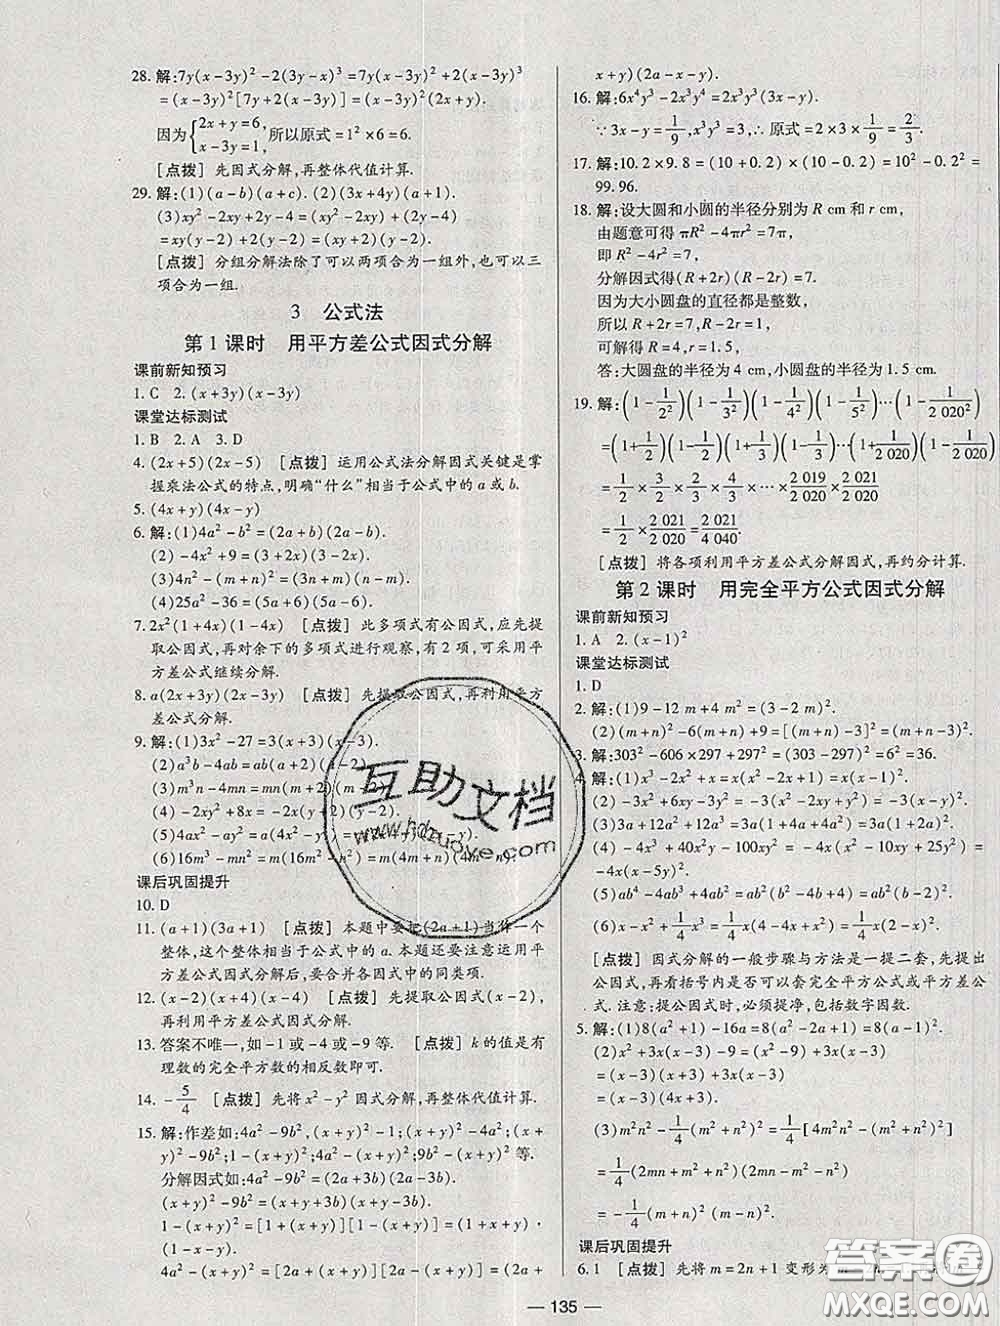 28. 解:7y(x-3y)²-2(3y-x)³=7y(x-3y)²+2(x-3y)³
=(x-3y)²[7y+2(x-3y)]=(x-3y)²(2x+y).
因为{2x+y=6, x-3y=1, 所以原式=1²×6=6.
[点拨] 先因式分解,再整体代值计算.
29. 解:(1)(a-b)(a+c). (2)(3x+4y)(a+1).
(3)xy²-2xy+2y-4=(xy²-2xy)+(2y-4)
=xy(y-2)+2(y-2)=(xy+2)(y-2).
[点拨] 分组分解法除了可以两项合为一组外,也可以三
项合为一组.
3 公式法
第1课时 用平方差公式因式分解
课前新知预习
1. C 2. (x+3y)(x-3y)
课堂达标测试
1. B 2. A 3. D
4. (2x+5)(2x-5) [点拨] 运用公式法分解因式关键是掌
握乘法公式的特点,明确“什么”相当于公式中的a或b.
5. (4x+y)(4x-y)
6. 解:(1)4a²-b²=(2a+b)(2a-b).
(2)-4x²+9=(3+2x)(3-2x).
(3)4n²-(m+n)²=(m+3n)(n-m).
(4)25a²-36=(5a+6)(5a-6).
7. 2x²(1+4x)(1-4x) [点拨] 此多项式有公因式,应先提
取公因式,再对余下的多项式进行观察,有2项,可采用平
方差公式继续分解.
8. a(2x+3y)(2x-3y) [点拨] 先提取公因式,再利用平方
差公式分解.
9. 解:(1)3x²-27=3(x+3)(x-3).
(2)a³b-4ab=ab(a+2)(a-2).
(3)m³n-4mn=mn(m+2)(m-2).
(4)-2xy²+8x=-2x(y+2)(y-2).
(5)4ax²-ay²=a(4x²-y²)=a(2x+y)(2x-y).
(6)16m³-mn²=m(16m²-n²)=m(4m+n)(4m-n).
课后巩固提升
10. D
11. (a+1)(3a+1) [点拨] 本题中要把(2a+1)当作一个
整体,这个整体相当于公式中的a.本题还要注意运用平
方差公式因式分解后,要合并各因式中的同类项.
12. (x-2)(x+4)(x-4) [点拨] 先提取公因式(x-2),
再利用平方差公式因式分解.
13. 答案不唯一,如-1或-4或-9等. [点拨] k的值是有
理数的完全平方数的相反数即可.
14. -5/4 [点拨] 先将x²-y²因式分解,再整体代值计算.
15. 解:作差如:4a²-9b²,(x+y)²-1;(x+y)²-4a²;(x+
y)²-9b²;1-(x+y)²;4a²-(x+y)²;9b²-(x+y)²等.
分解因式如:4a²-9b²=(2a+3b)(2a-3b).
(x+y)²-9b²=(x+y+3b)(x+y-3b).
1-(x+y)²=[1+(x+y)][1-(x+y)]=(1+x+y)·
(1-x-y).
4a²-(x+y)²=[2a+(x+y)][2a-(x+y)]=(2a+
x+y)(2a-x-y).
16. 解:6x⁴y³-2x³y⁴=2x³y³(3x-y).
∵3x-y=1/9,x³y³=3,∴原式=2×3×1/9=2/3.
17. 解:10.2×9.8=(10+0.2)×(10-0.2)=10²-0.2²=
99.96.
18. 解:设大圆和小圆的半径分别为R cm和r cm,
由题意可得πR²-4πr²=7π,
即R²-4r²=7,
分解因式得(R+2r)(R-2r)=7.
因为大小圆盘的直径都是整数,
所以R+2r=7,R-2r=1,
可解得R=4,r=1.5,
答:大圆盘的半径为4 cm,小圆盘的半径为1.5 cm.
19. 解:(1-1/2²)(1-1/3²)(1-1/4²)(1-1/5²)…(1-1/2 020²)
=(1+1/2)(1-1/2)(1+1/3)(1-1/3)…(1+1/2 020)(1-1/2 020)
=1/2×3/2×2/3×4/3×…×2 019/2 020×2 021/2 020
=1/2×2 021/2 020=2 021/4 040.
[点拨] 将各项利用平方差公式分解因式,再约分计算.
第2课时 用完全平方公式因式分解
课前新知预习
1. A 2. (x-1)²
课堂达标测试
1. D
2. 解:(1)9-12m+4m²=(3-2m)².
(2)(m+n)²-6(m+n)+9=[(m+n)-3]²=(m+n-3)².
3. 解:303²-606×297+297²=(303-297)²=6²=36.
4. 解:(1)x³-2x²+x=x(x²-2x+1)=x(x-1)².
(2)-3x²+6xy-3y²=-3(x²-2xy+y²)=-3(x-y)².
(3)3a+12a²+12a³=3a(1+4a+4a²)=3a(1+2a)².
(4)-4x³+40x²y-100xy²=-4x(x²-10xy+25y²)=
-4x(x-5y)².
(5)ab⁴-4ab³+4ab²=ab²(b²-4b+4)=ab²(b-2)².
(6)x-x²+1/4x³=1/4x(4-4x+x²)=1/4x(2-x)².
[点拨] 因式分解的一般步骤与方法是一提二套,先提出
公因式,再看括号内是否可以套完全平方公式或平方差公
式.注意:提公因式时,必须提净,包括数字因数.
5. 解:(1)8(a²+1)-16a=8(a²-2a+1)=8(a-1)².
(2)(x-3)²+3x(x-3)=(x-3)(x-3+3x)
=(x-3)(4x-3).
(3)m²n²-1/4(m²+n²)²=1/4[4m²n²-(m²+n²)²]
=1/4(2mn+m²+n²)(2mn-m²-n²)
=-1/4(m+n)²(m-n)².
课后巩固提升
6. 1 [点拨] 先将m=2n+1变形为
— 135 —
互助文档
www.hdzuoye.com
答案圈
MXQE.COM